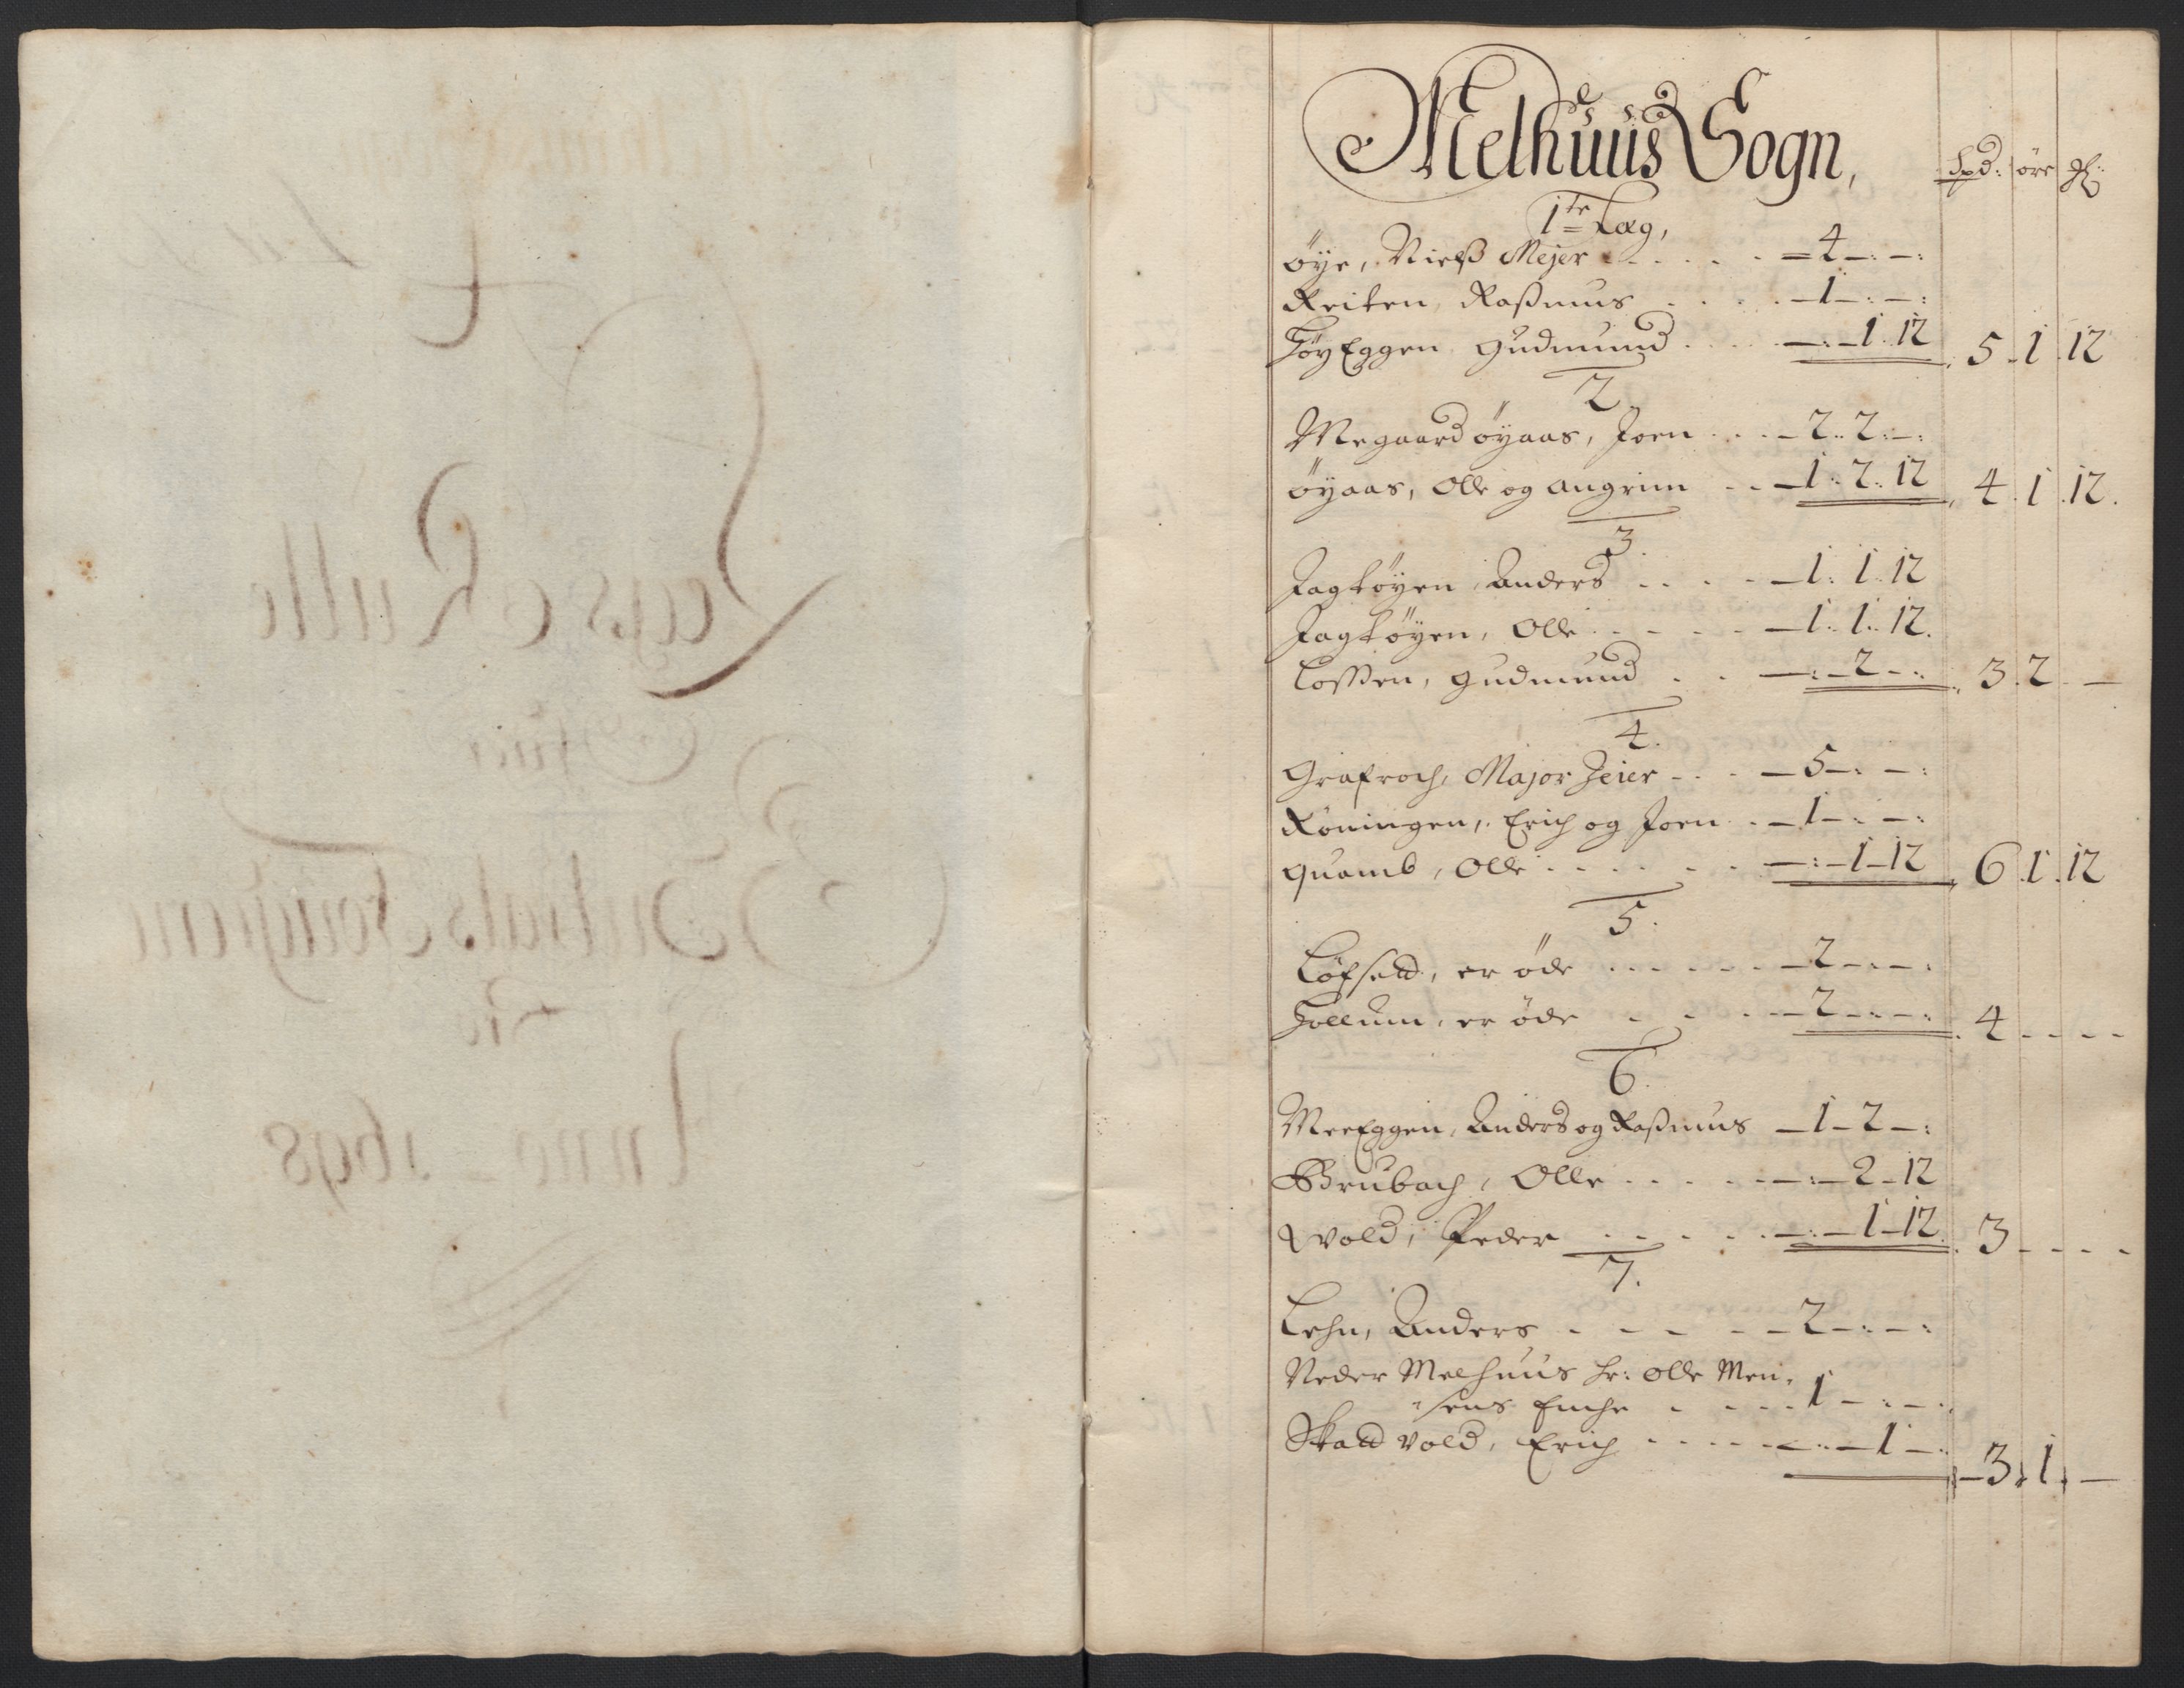 Melhuus Sogn,
Spd: øre
1te Læg,
Øye, Nielß Mejer - 4 - : - :
Reiten, Raßmus - 1 - : - :
HøyEggen Gudmund - : - 1. 12 5. 1. 12
2.
Megaard øyaas, Joen - 2. 2. - :
Øyaas, Olle og Angrim - 1. 2. 12 4. 1. 12.
3.
Jagtøyen Anders - 1. 1. 12
Jagtøyen, Olle - 1. 1. 12.
Loßen, Gudmund - : - 2 - : 3. 2. -
4.
Grafroch, Major Zeier - 5 - : - :
Røningen, Erich og Joen - 1 - : - :
Quamb, Olle - : - 1 - 12 6. 1. 12
5.
Løfseld, er øde - 2 - : - :
Hollum, er øde - 2 - : - : 4 - - -
6.
MeeEggen, Anders og Raßmus - 1 - 2 - :
Brubach, Olle - : - 2 - 12
Wold, Peder - : - 1 - 12. 3 - - -
7.
Lehn, Anders - 2 - : - :
Neder Melhuus hr: Olle Men-
sens Enche - 1 - : - :
Skaldvold, Erich - : - 1 - : - 3. 1. -